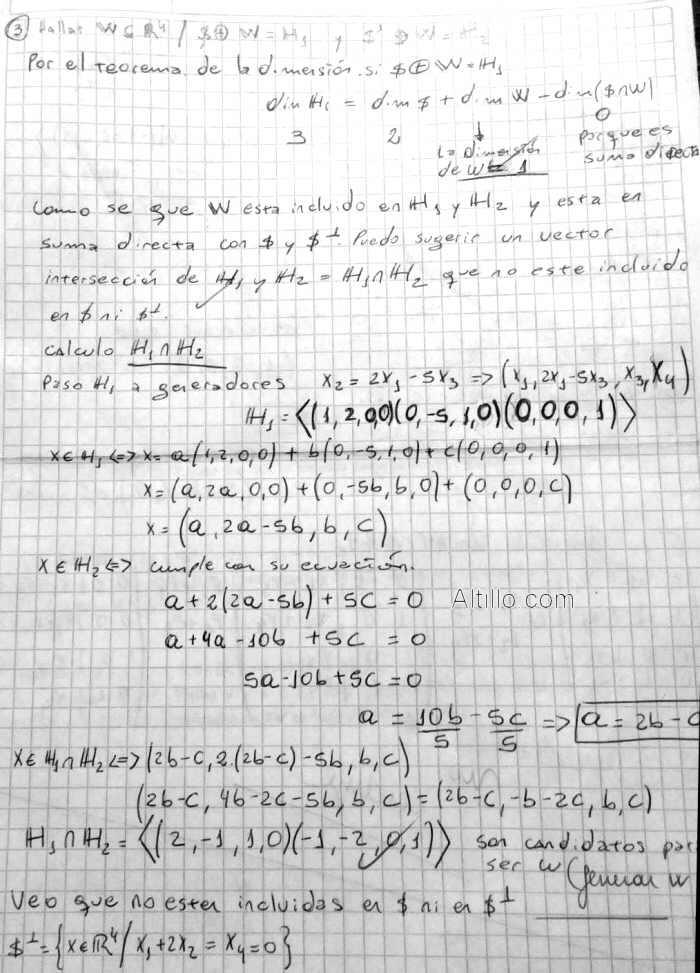 ③ Hallar W ⊆ ℝ⁴ / $ ⊕ W = H₁ y $⊥ ⊕ W = H₂
Por el teorema de la dimensión si $ ⊕ W = H₁
dim H₁ = dim $ + dim W - dim ($∩W)
3 2 ↓ 0
La dimensión de W = 1
porque es suma directa
Como se que W esta incluido en H₁ y H₂ y esta en
suma directa con $ y $⊥. Puedo sugerir un vector
intersección de H₁ y H₂ = H₁∩H₂ que no este incluido
en $ ni $⊥.
Calculo H₁∩H₂
Paso H₁ a generadores x₂ = 2x₁ - 5x₃ => (x₁, 2x₁-5x₃, x₃, x₄)
H₁ = <(1,2,0,0)(0,-5,1,0)(0,0,0,1)>
x ∈ H₁ <=> x = a(1,2,0,0) + b(0,-5,1,0) + c(0,0,0,1)
x = (a, 2a, 0, 0) + (0, -5b, b, 0) + (0, 0, 0, c)
x = (a, 2a-5b, b, c)
x ∈ H₂ <=> cumple con su ecuación.
a + 2(2a-5b) + 5c = 0
Altillo com
a + 4a - 10b + 5c = 0
5a - 10b + 5c = 0
a = 10b/5 - 5c/5 => a = 2b - c
x ∈ H₁∩H₂ <=> (2b-c, 2.(2b-c)-5b, b, c)
(2b-c, 4b-2c-5b, b, c) = (2b-c, -b-2c, b, c)
H₁∩H₂ = <(2,-1,1,0)(-1,-2,0,1)> son candidatos par
ser W (generar W
Veo que no esten incluidas en $ ni en $⊥
$⊥ = {x∈ℝ⁴/ x₁+2x₂ = x₄ = 0}